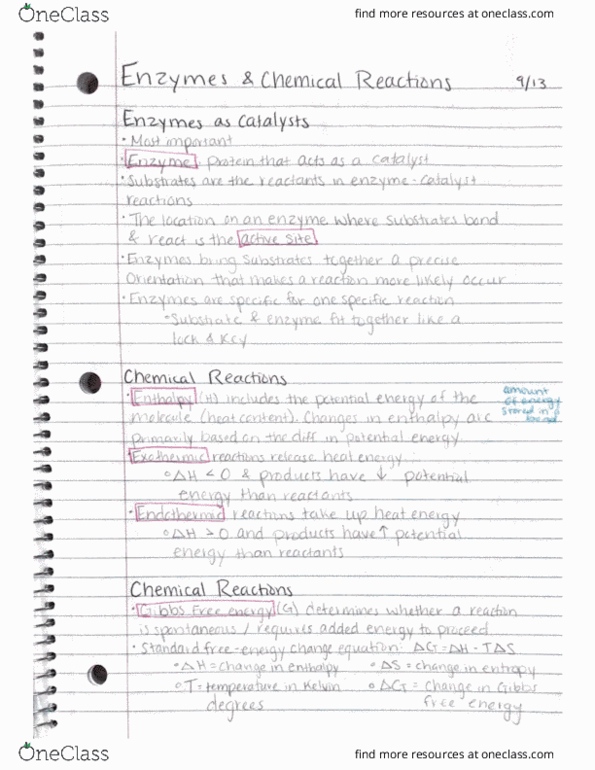 OneClass
find more resources at oneclass.com
Enzymes & Chemical Reactions 9/13
Enzymes as Catalysts
• Most important
• Enzyme: protein that acts as a catalyst
• Substrates are the reactants in enzyme-catalyst
reactions
• The location on an enzyme where substrates bond
& react is the active site
• Enzymes bring substrates together a precise
orientation that makes a reaction more likely occur
• Enzymes are specific for one specific reaction
◦ Substrate & enzyme fit together like a
lock & key
Chemical Reactions
• Enthalpy (H) includes the potential energy of the
molecule (heat content). Changes in enthalpy are
primarily based on the diff in potential energy
amount
of energy
stored in a
bond
• Exothermic reactions release heat energy
◦ ΔH < 0 & products have ↓ potential
energy than reactants
• Endothermic reactions take up heat energy
◦ ΔH > 0 and products have ↑ potential
energy than reactants
Chemical Reactions
• Gibbs free energy (G) determines whether a reaction
is spontaneous / requires added energy to proceed
• Standard free-energy change equation: ΔG = ΔH - TΔS
◦ ΔH = change in enthalpy ◦ ΔS = change in entropy
◦ T = temperature in Kelvin ◦ ΔG = change in Gibbs
degrees free energy
OneClass
find more resources at oneclass.com